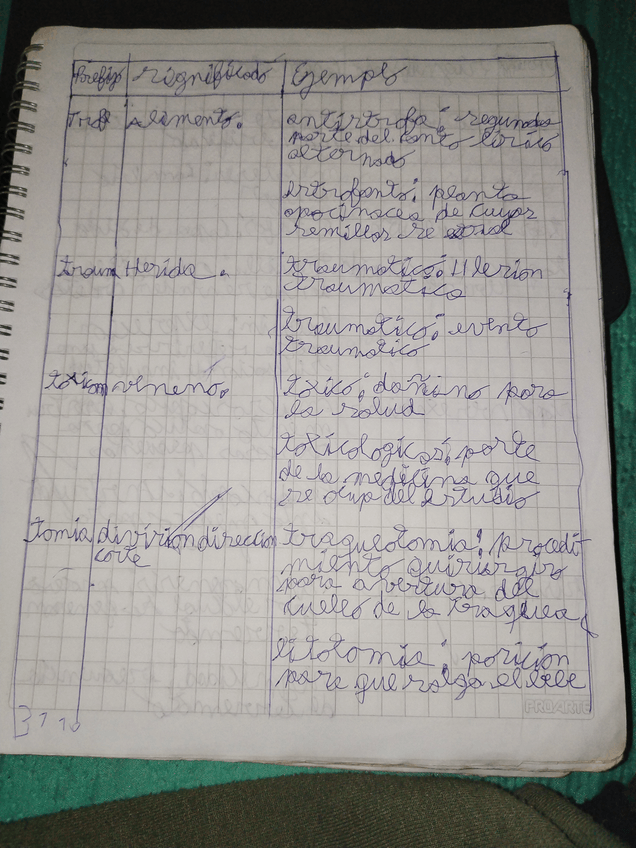 Prefijo significado Ejemplo
Trof Alimento. antistrofa: segunda
parte del canto lirico
alternado
estrofanto: planta
apocinacea de cuyas
semillas se
traum Herida. traumatica: Hlesion
traumatica
traumatico: evento
traumatico
toxicom veneno. toxico: dañino para
la salud
toxicologicas: parte
de la medicina que
se ocup del estudio
tomia division direccion traqueotomia: procedi-
corte miento quirurgiro
para avertura del
cuello de la traquea
litotomia: posicion
para que salga el bebe
PROARTE